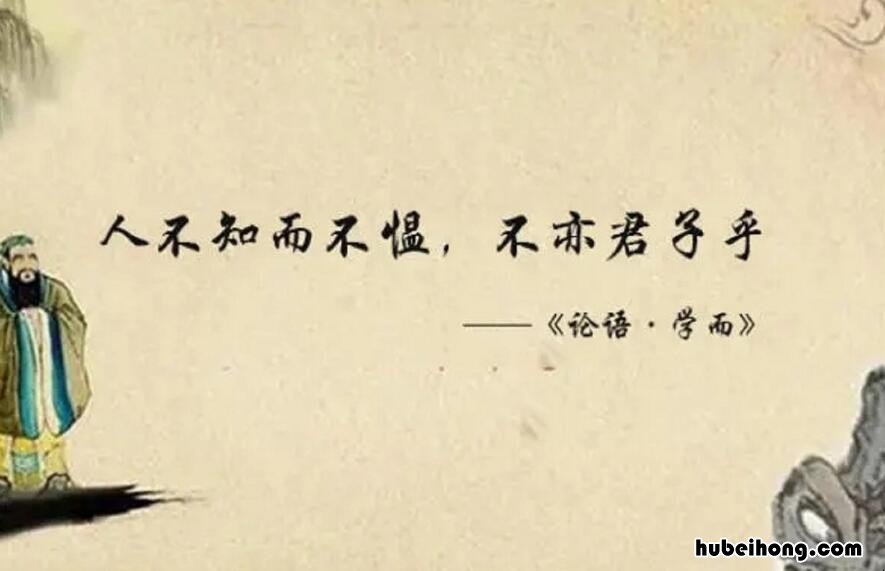 人不知而不愠，不亦君子乎
——《论语·学而》
hubeihong.com